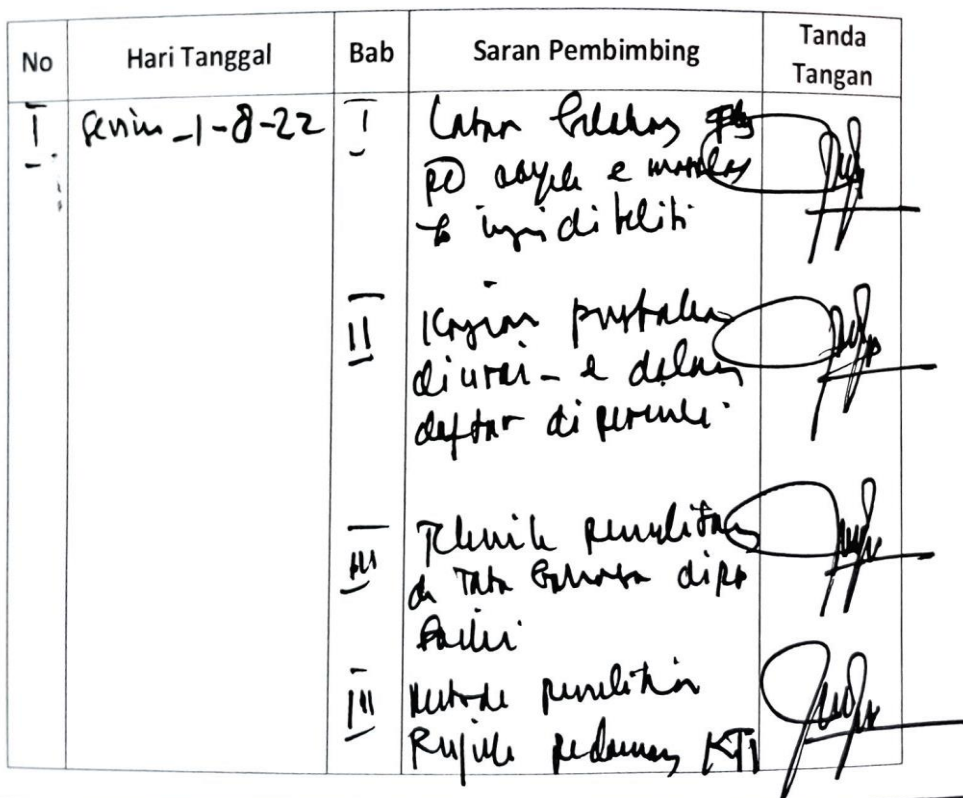 No Hari Tanggal Bab Saran Pembimbing Tanda Tangan
I Senin - 1-8-22 I Latar belakang
pd e masalah
ingin diteliti
II Kajian pustaka
diurai - e dalam
daftar
III Teknik penelitian
Tata bahasa dipe
baiki
III Metode penelitian
Rujuk pedoman KTI